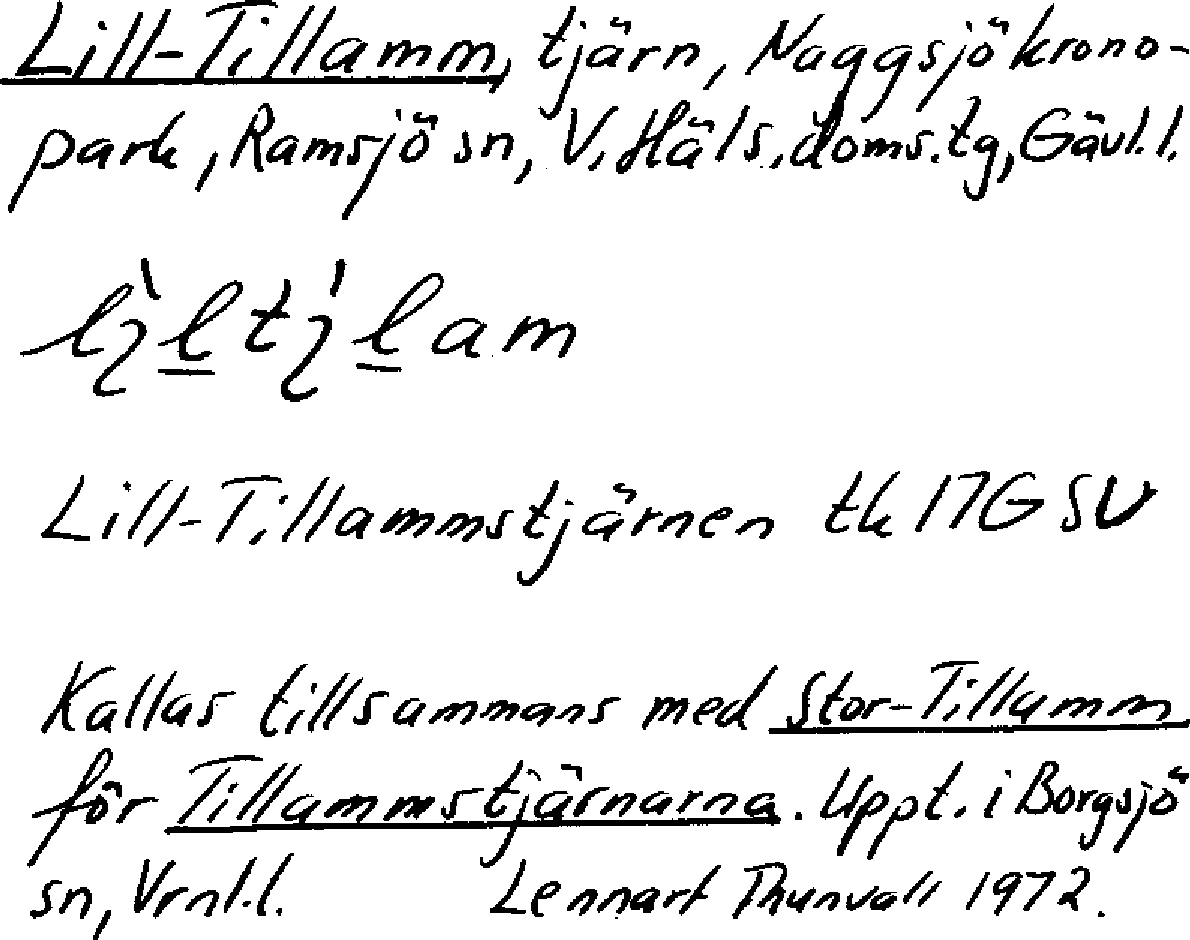 Lill-Tillamm, tjärn, Naggsjö krono-
park, Ramsjö sn, V. Häls. doms.tg, Gävl.l.
Lill-Tillammstjärnen tk 17G SV
Kallas tillsammans med Stor-Tillamm
för Tillammstjärnarna. Uppt. i Borgsjö
sn, Vrnl.l. Lennart Thunvall 1972.